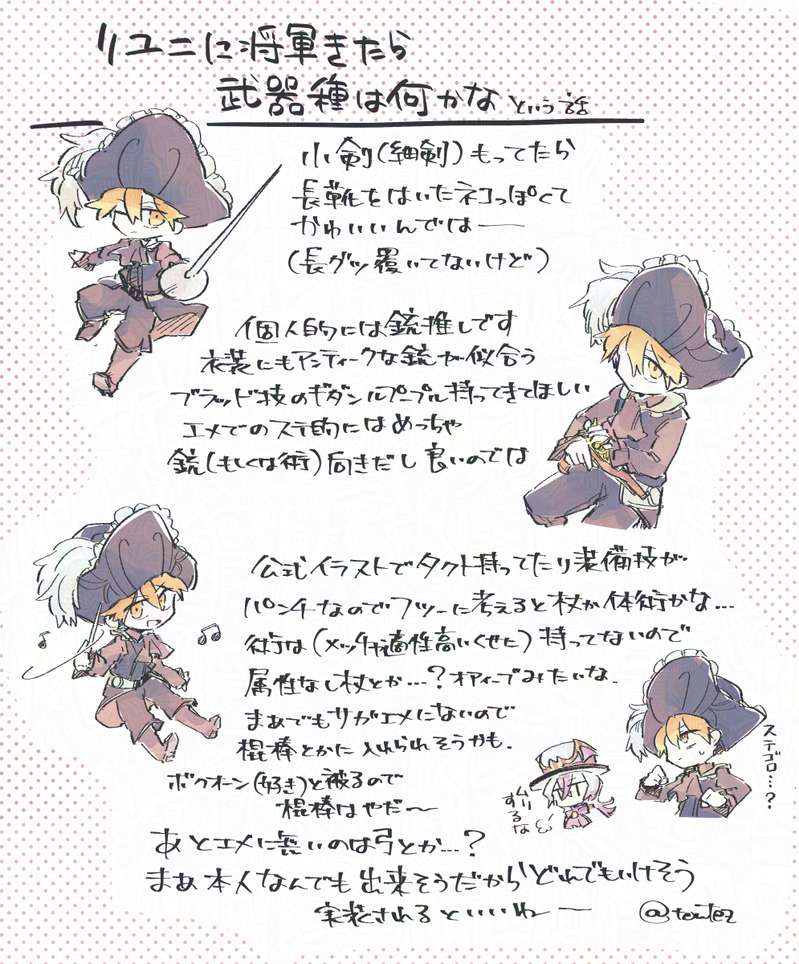 リユニに将軍きたら
武器種は何かな という話
小剣(細剣)もってたら
長靴をはいたネコっぽくて
かわいいんでは──
(長グツ履いてないけど)
個人的には銃推しです
衣装にもアンティークな銃が似合う
ブラッド技のギダン ルプープル持ってきてほしい
エメでのステ的にはめっちゃ
銃(もしくは術)向きだし良いのでは
公式イラストでタクト持ってたり装備技が
パンチなのでフツーに考えると杖か体術かな…
術は(メッチャ適性高いくせに)持ってないので
属性なし杖とか…?オディーブみたいな.
まあでもサガエメにないので
棍棒とかに入れられそうかも.
ボクオーン(好き)と被るので
棍棒はやだ〜
ステゴロ…?
ムリ
するな
あとエメに無いのは弓とか…?
まあ本人なんでも出来そうだからどれでもいけそう
実装されるといいね──